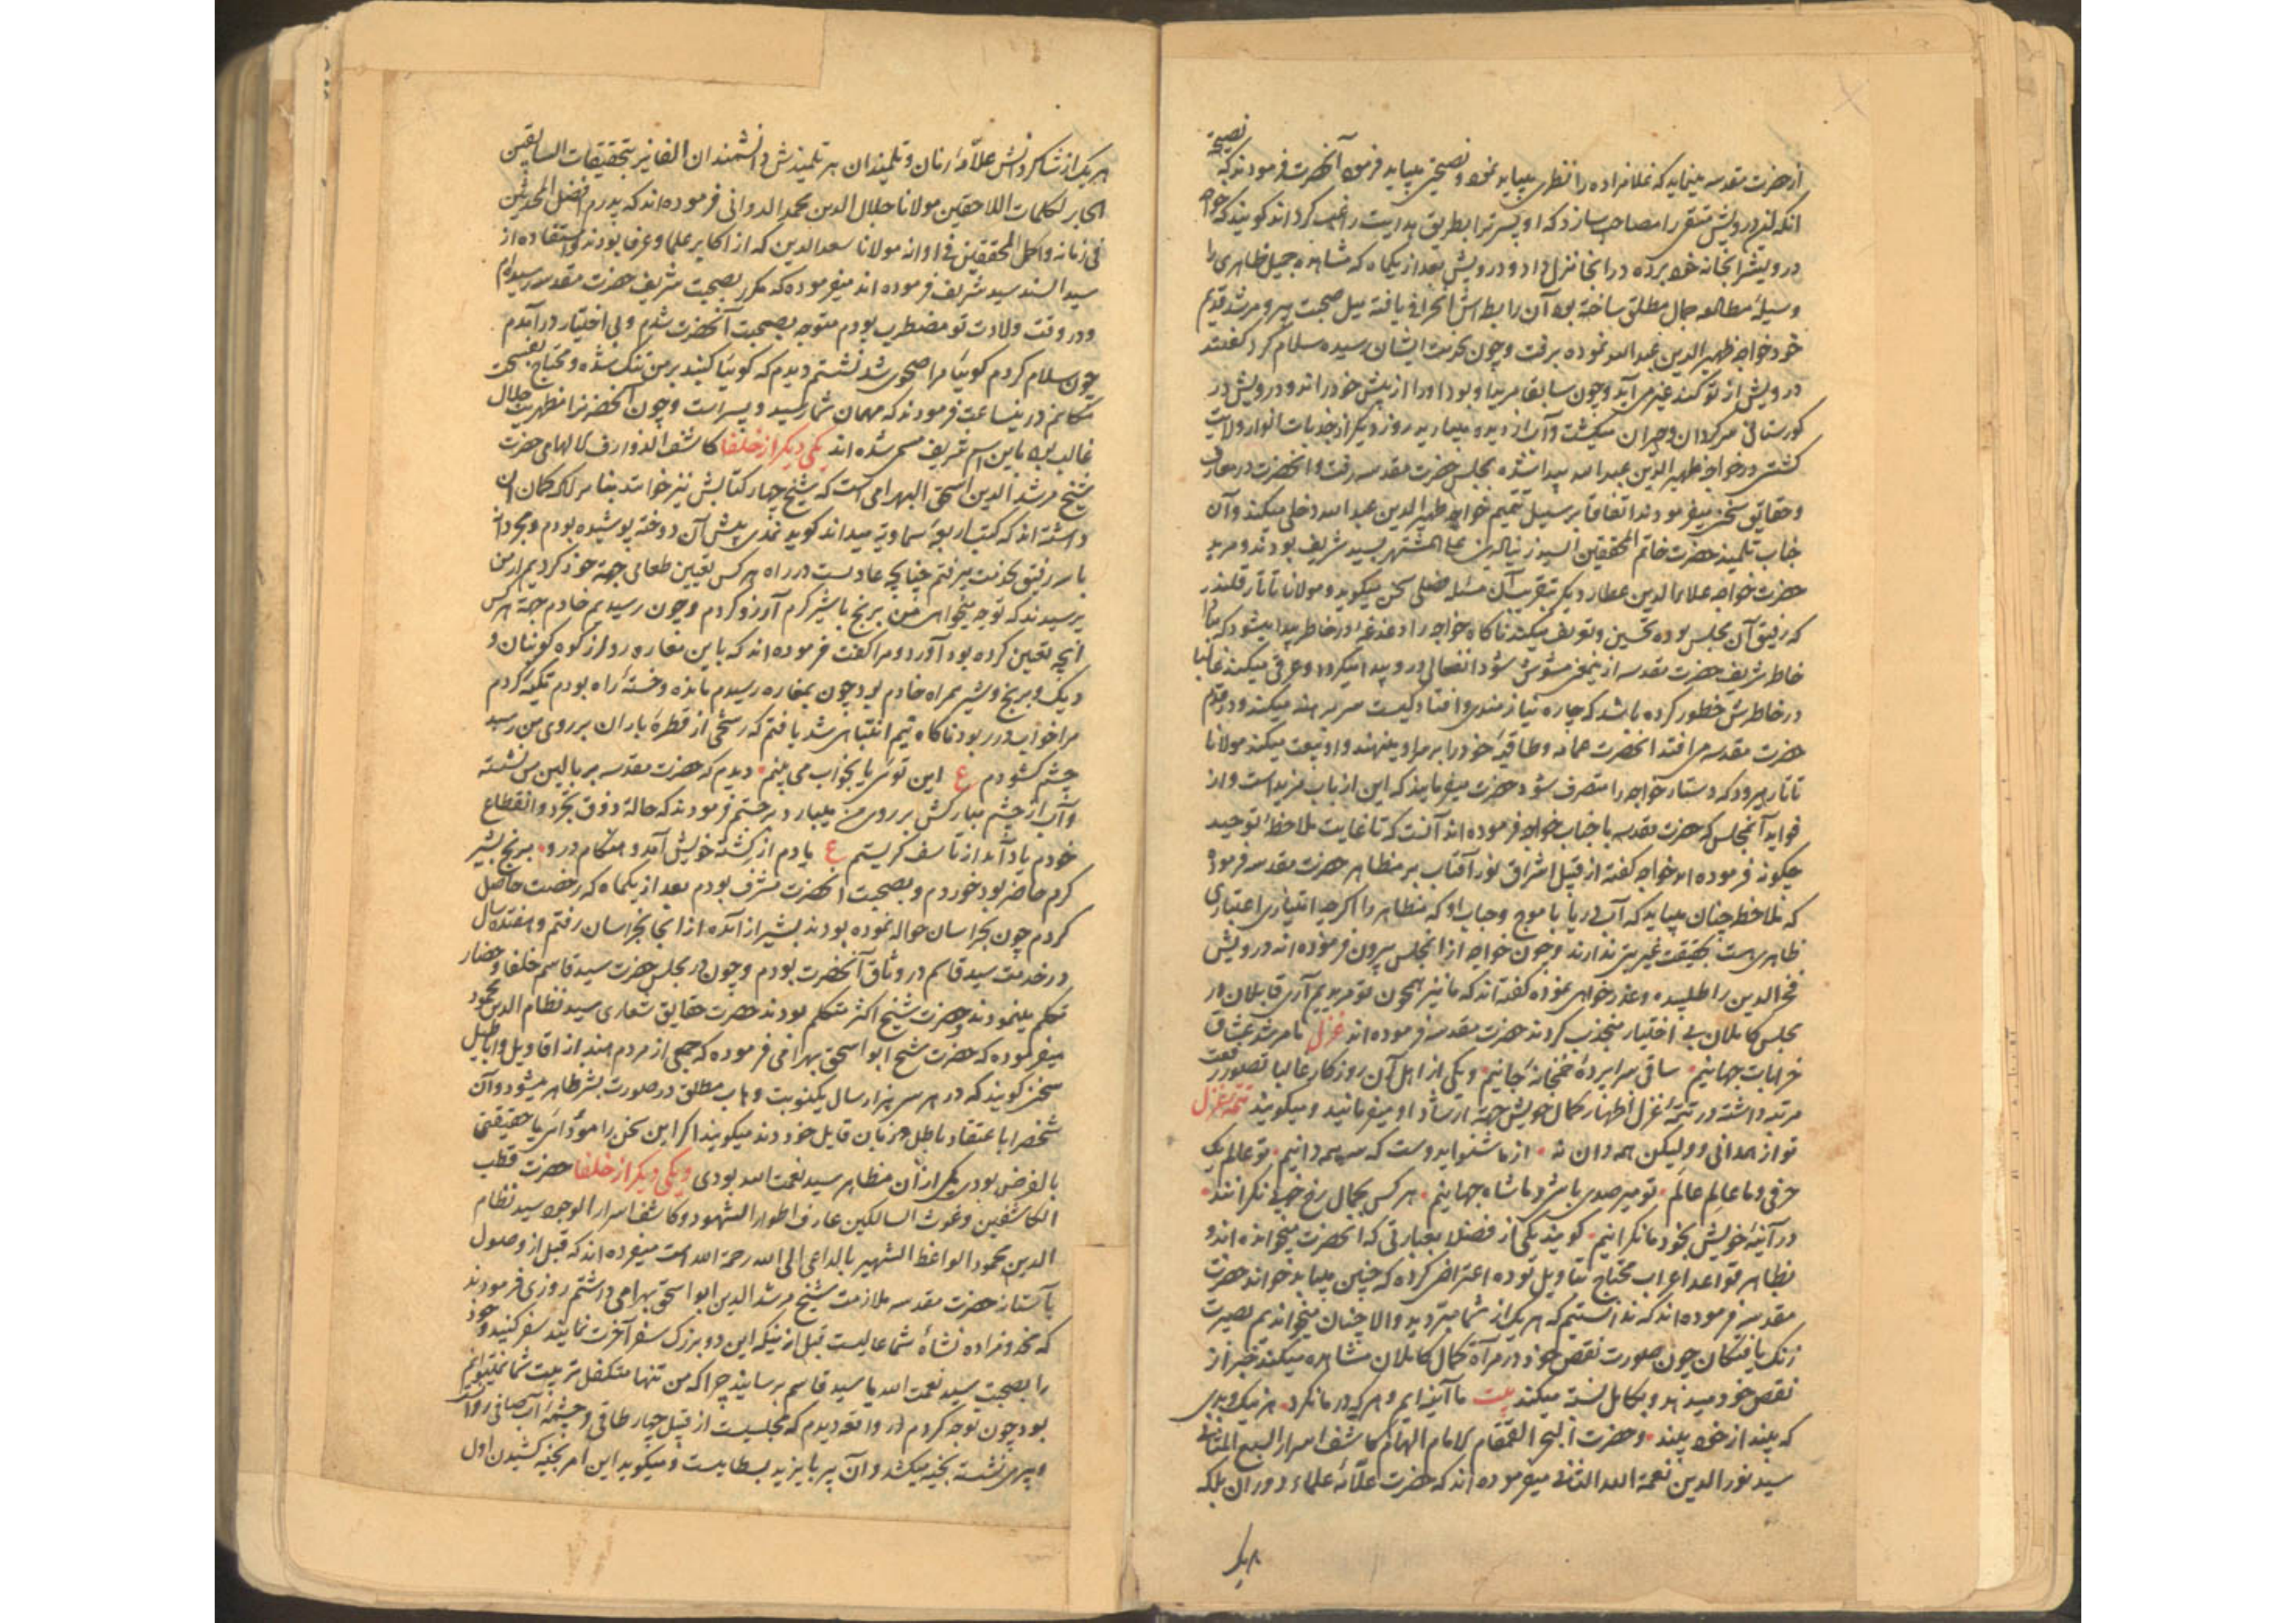 از حضرت مقدسه مینماید که غلامزاده را نظری میباید نمود و نصیحتی میباید فرمود آنحضرت فرمودند که نصیحت
انکه این درویش متقی را مصاحب سازد که او پسر ترا بطریق هدایت راغب کرداند کویند که خواجه
درویش را بخانه خود برده در انجا منزل داد و درویش بعد از یکماه که مشاهده جمیل ظاهری را
وسیلهٔ مطالعه جمال مطلق ساخته بود آن رابطه اش انحراف یافته میل صحبت پیر و مرشد قدیم
خود خواجه ظهیر الدین عبد الله نموده برفت و چون بخدمت ایشان رسیده سلام کرد کفتند
درویش از تو کند غیر می آید و چون سابقا مرید او بود او را از پیش خود راند و درویش در
کورستانی سرکردان و حیران میکشت و آب از دیده میبارید روز دیکر از جذبات انوار ولایت
کشتی در خواجه ظهیر الدین عبد الله پیدا شده بمجلس حضرت مقدسه رفت و آنحضرت در معارف
و حقایق سخن میفرمودند اتفاقا بر سبیل تتمیم خواجه ظهیر الدین عبد الله دخلی میکند و آن
جناب تلمیذ حضرت خاتم المحققین السید زین الدین علی المشتهر بسید شریف بودند و مرید
حضرت خواجه علاء الدین عطار دیکر بتقریب آن مسئله فضلی سخن میکوید و مولانا تاتار قلندر
که رفیق آن مجلس بوده تحسین و تعریف میکند ناکاه خواجه را دغدغه در خاطر پیدا میشود که مبادا
خاطر شریف حضرت مقدسه ازین معنی مشوش شود انفعالی در و پیدا میکردد و عرق میکند غالبا
در خاطرش خطور کرده باشد که چاره نیازمندی و افتادکیست سر برهنه میکند و در قدم
حضرت مقدسه می افتد آنحضرت عمامه و طاقیه خود را بر سر او مینهند و او بیعت میکند مولانا
تاتار میرود که دستار خواجه را متصرف شود حضرت میفرمایند که این از باب مزید است و از
فواید آنمجلس که حضرت مقدسه با جناب خواجه فرموده اند آنست که تا غایت ملاحظهٔ توحید
چکونه فرموده اند خواجه کفته از قبیل اشراق نور آفتاب بر مظاهر حضرت مقدسه فرموده
که ملاحظه چنان میباید که آب دریا با موج و حباب او که مظاهر را اکرچه امتیازی اعتباری
ظاهری هست بحقیقت غیریتی ندارند و چون خواجه از انمجلس بیرون فرموده اند درویش
فخر الدین را طلبیده و عذر خواهی نموده کفته اند که ما نیز همچون تو مریدیم آری قابلان از
مجلس کاملان بی اختیار منجذب کردند حضرت مقدسه فرموده اند غزل ما مرشد عشاق
خرابات جهانیم ساقی سراپرده خمخانهٔ جانیم و یکی از اهل آن روزکار غالبا تصور رفعت
مرتبه داشته در تتمهٔ غزل اظهار کمال خویش جهة ارشاد او میفرمانید و میکویند تتمهٔ غزل
تو از همدانی و ولیکن همه دان نه از ما شنو ایدوست که ما همه دانیم تو عالم یک
حرفی و ما عالم عالم تو میر صدی باش و ما شاه جهانیم هر کس بجمال رخ خوبی نکرانند
در آینهٔ خویش بخود ما نکرانیم کویند یکی از فضلا بعبارتی که آنحضرت میخوانده اند و
بظاهر قواعد اعراب محتاج بتاویل بوده اعتراض کرده که چنین میباید خواند حضرت
مقدسه فرموده اند که ندانستیم که هر یک از شما میزدید والا چنان میخواندیم بصیرت
زنک یافتکان چون صورت نقص خود در مرآة کمال کاملان مشاهده میکنند خبر از
نقص خود میدهند و بکامل نسبت میکنند بیت ما آینه ایم و هر که در ما نکرد هر نیک و بدی
که بیند از خود بیند و حضرت البحر القمقام الامام الهمام کاشف اسرار السبع المثانی
سید نور الدین نعمة الله الثانی میفرموده اند که حضرت علامهٔ علماء دوران بلکه
هر یک
هر یک از شاکردانش علامهٔ زمان و تلمیذان هر تلمیذش دانشمندان الفایز بتحقیقات السابقین
الجابر لکلمات اللاحقین مولانا جلال الدین محمد الدوانی فرموده اند که پدرم افضل المحدثین
فی زمانه و اکمل المحققین فی اوانه مولانا سعد الدین که از اکابر علما و عرفا بودند و استفاده از
سید السند سید شریف فرموده اند میفرموده که مکرر بصحبت شریف حضرت مقدسه رسیده ام
و در وقت ولادت تو مضطرب بودم متوجه بصحبت آنحضرت شدم و بی اختیار در آمدم
چون سلام کردم کوییا مرا صحوی شد نشستم دیدم که کوییا کنبد بر من تنک شده و محتاج
تکلم درینساعت فرمودند که مهمان شما رسید و پسر است و چون آنحضرت را مظهریت جلال
غالب بود باین اسم شریف مسمی شده اند یکی دیکر از خلفا کاشف الذوارف الالهامی حضرت
شیخ مرشد الدین اسحق البهرامی است که شیخ چهار کتابش نیز خوانند بنا بر آنکه کمان آن
داشته اند که کتب اربعهٔ سماویه میداند کوید نمدی پیش آن دوخته پوشیده بودم و مجردانه
با سه رفیق بخدمت میرفتم چنانچه عادتست در راه هر کس تعیین طعامی جهة خود کردیم از من
پرسیدند که تو چه میخواهی من برنج با شیر کرم آرزو کردم و چون رسیدیم خادم جهة هر کس
آنچه تعیین کرده بود آورد و مرا کفت فرموده اند که باین مغاره رو از کوه کوبنان و
دیک و برنج و شیر همراه خادم بود چون بمغاره رسیدم مانده و خستهٔ راه بودم تکیه کردم
مرا خواب در ربود ناکاه نیم انتباهی شد یافتم که رشحی از قطرهٔ باران بر روی من رسید
چشم کشودم ع این توئی یا بخواب می بینم دیدم که حضرت مقدسه بر بالین من نشسته
و آب از چشم مبارکش بر روی من میبارد برجستم فرمودند که حالة ذوق تجرد و انقطاع
خودم یاد آمد از تاسف کریستم ع یادم از کشتهٔ خویش آمد و هنکام درو برنج بشیر
کرم حاضر بود خوردم و بصحبت آنحضرت مشرف بودم بعد از یکماه که رخصت حاصل
کردم چون بخراسان حواله نموده بودند بشیراز آمده از انجا بخراسان رفتم و هفتده سال
در خدمت سید قاسم در وثاق آنحضرت بودم و چون در مجلس حضرت سید قاسم خلفا و حضار
تکلم مینمودند و حضرت شیخ اکثر متکلم بودند حضرت حقایق شعاری سید نظام الدین محمود
میفرموده که حضرت شیخ ابو اسحق بهرامی فرموده که جمعی از مردم هند از اقاویل و اباطیل
سخن کویند که در هر سر هزار سال یکنوبت وهاب مطلق در صورت بشر ظاهر میشود و آن
شخص را با عتقاد باطل هر زمان قایل خود دند میکویند اکر این سخن را مودائی یا حقیقتی
بالفرض بودی یکی از آن مظاهر سید نعمت الله بودی و یکی دیکر از خلفا حضرت قطب
الکاشفین و غوث السالکین عارف اطوار الشهود و کاشف اسرار الوجود سید نظام
الدین محمود الواعظ الشهیر بالداعی الی الله رحمة الله است میفرموده اند که قبل از وصول
بآستان حضرت مقدسه ملازمت شیخ مرشد الدین ابو اسحق بهرامی داشتم روزی فرمودند
که مخدومزاده نشأهٔ شما عالیست قبل از ینکه این دو بزرک سفر آخرت نمایند سفر کنید و خود
را بصحبت سید نعمت الله یا سید قاسم برسانید چرا که من تنها متکفل تربیت شما نمیتوانم
بود چون توجه کردم در واقعه دیدم که مجلسیست از قبیل چهار طاقی و چشمهٔ آب صافی روان
و پیری نشسته بخیه میکشد و آن پیر بایزید بسطامیست و میکوید این امر بخیه کشیدن اول